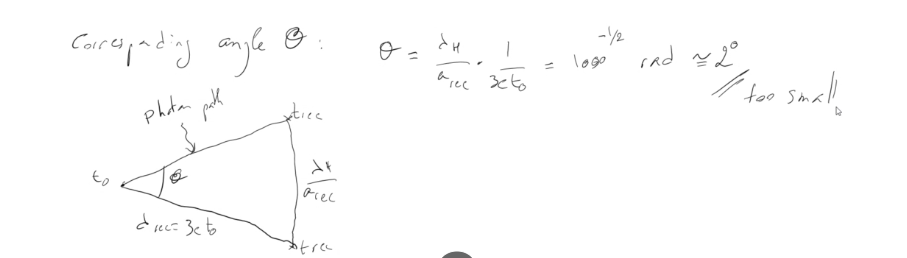 Corresponding angle θ :
θ = λH/arec · 1/3ct0 = 1000^-1/2 rad ≅ 2°
too small
photon path
trec
t0
θ
λH/arec
drec = 3ct0
trec